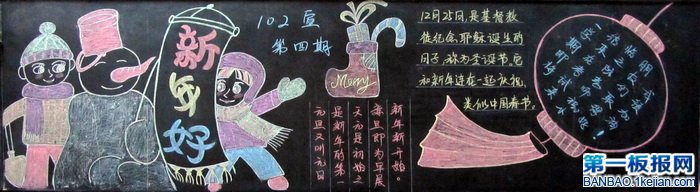 新年好
102
第四期
Merry
元旦又叫元日
是新年的第一
天元是初始之
意旦即为早晨
新年新开始。
12月25日,是基督教
徒纪念耶稣诞生的
日子,称为圣诞节,它
和新年连在一起庆祝,
类似中国春节。
第一板报网
BANBAO.1kejian.com